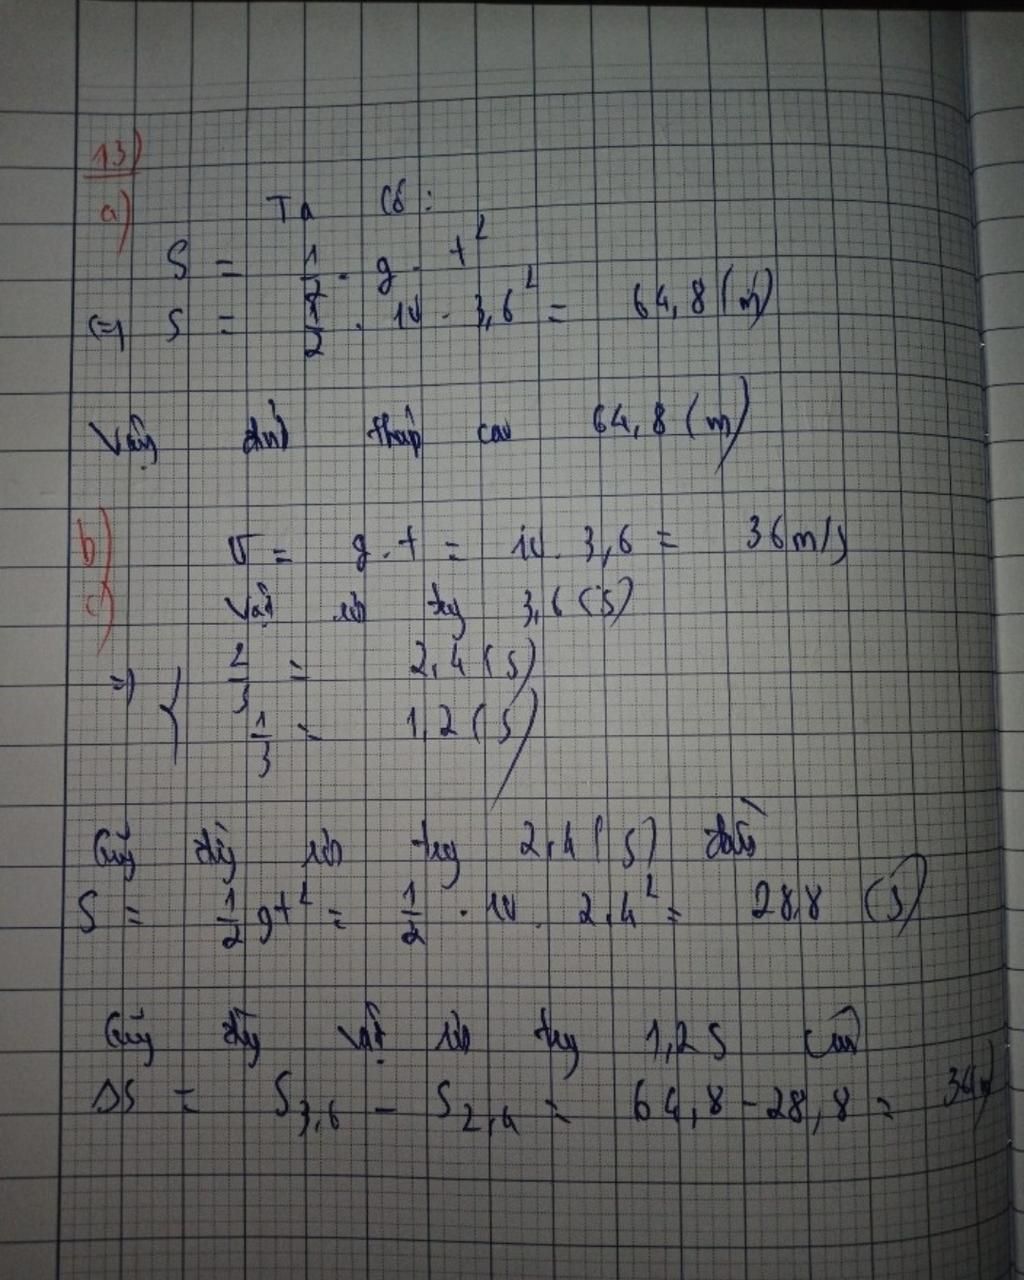 13)
a) Ta có:
S = 1/2 . g . t²
<=> S = 1/2 . 10 . 3,6² = 64,8 (m)
Vậy đỉnh tháp cao 64,8 (m)
b) v = g.t = 10. 3,6 = 36m/s
c) Vật rơi trg 3,6 (s)
=> { 2/3 = 2,4 (s)
1/3 = 1,2 (s)
Quãng đg rơi trg 2,4 (s) đầu
S = 1/2 gt² = 1/2 . 10. 2,4² = 28,8 (s)
Quãng đg vật rơi trg 1,2s cuối
ΔS = S3,6 - S2,4 = 64,8 - 28,8 = 36m